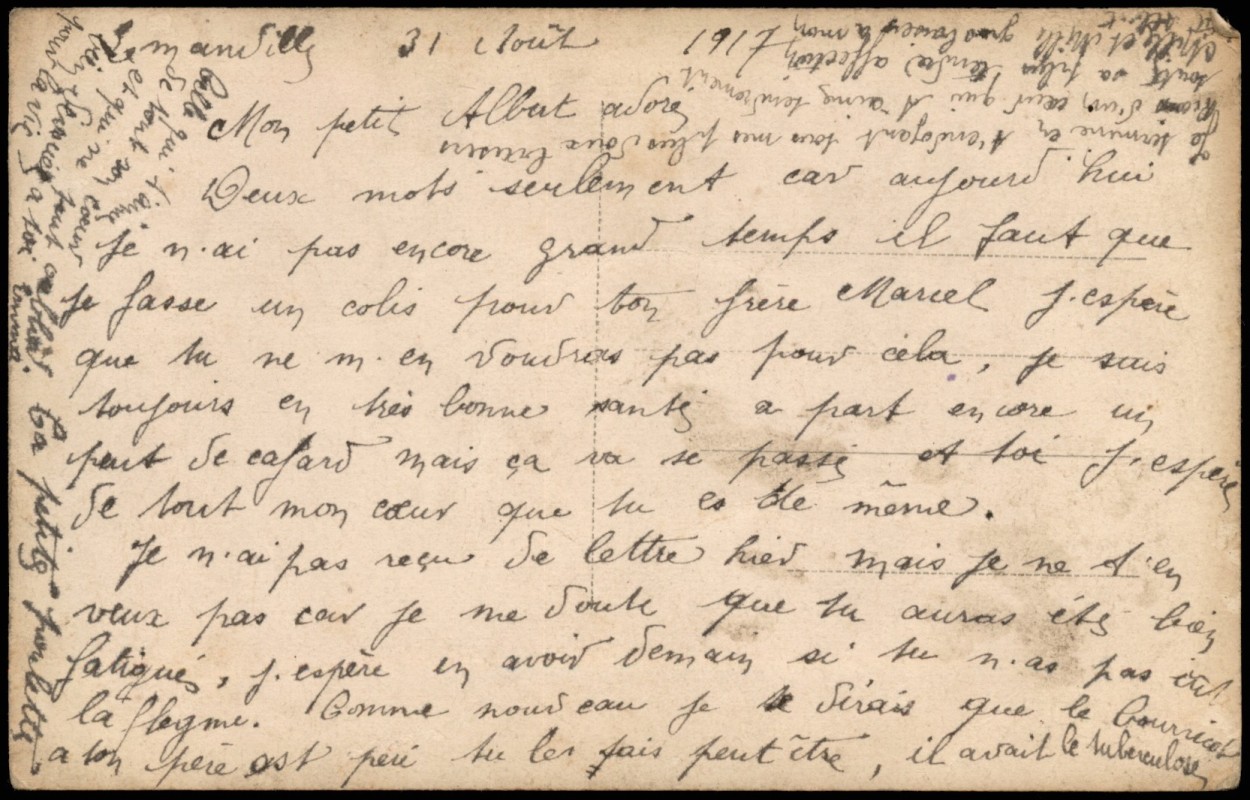 31 Août 1917
Mon petit Albert adoré
Deux mots seulement car aujourd'hui
Je n'ai pas encore grand temps il faut que
Je fasse un colis pour ton frère Marcel J'espère
que tu ne m'en voudras pas pour cela, je suis
toujours en très bonne santé a part encore un
peut de cafard mais ça va se passé et toi J'espère
de tout mon cœur que tu es de même.
Je n'ai pas reçu de lettre hier mais Je ne t'en
veux pas car Je me doute que tu auras été bien
fatigué, J'espère en avoir demain si tu n'as pas eut
la flegme. Comme nouveau Je te dirais que le bourricot
a ton père est péri tu les sais peut être, il avait le tuberculose
Je termine en t'envoyant tous mes plus doux baisers
d'un cœur qui t'aime tendrement
toute sa plus tendre affection
Mille et Mille gros baisers a mon
Celle qui t'aime
de tout son cœur
et qui ne
pour la vie a toi Emma.
Ta petite poulette